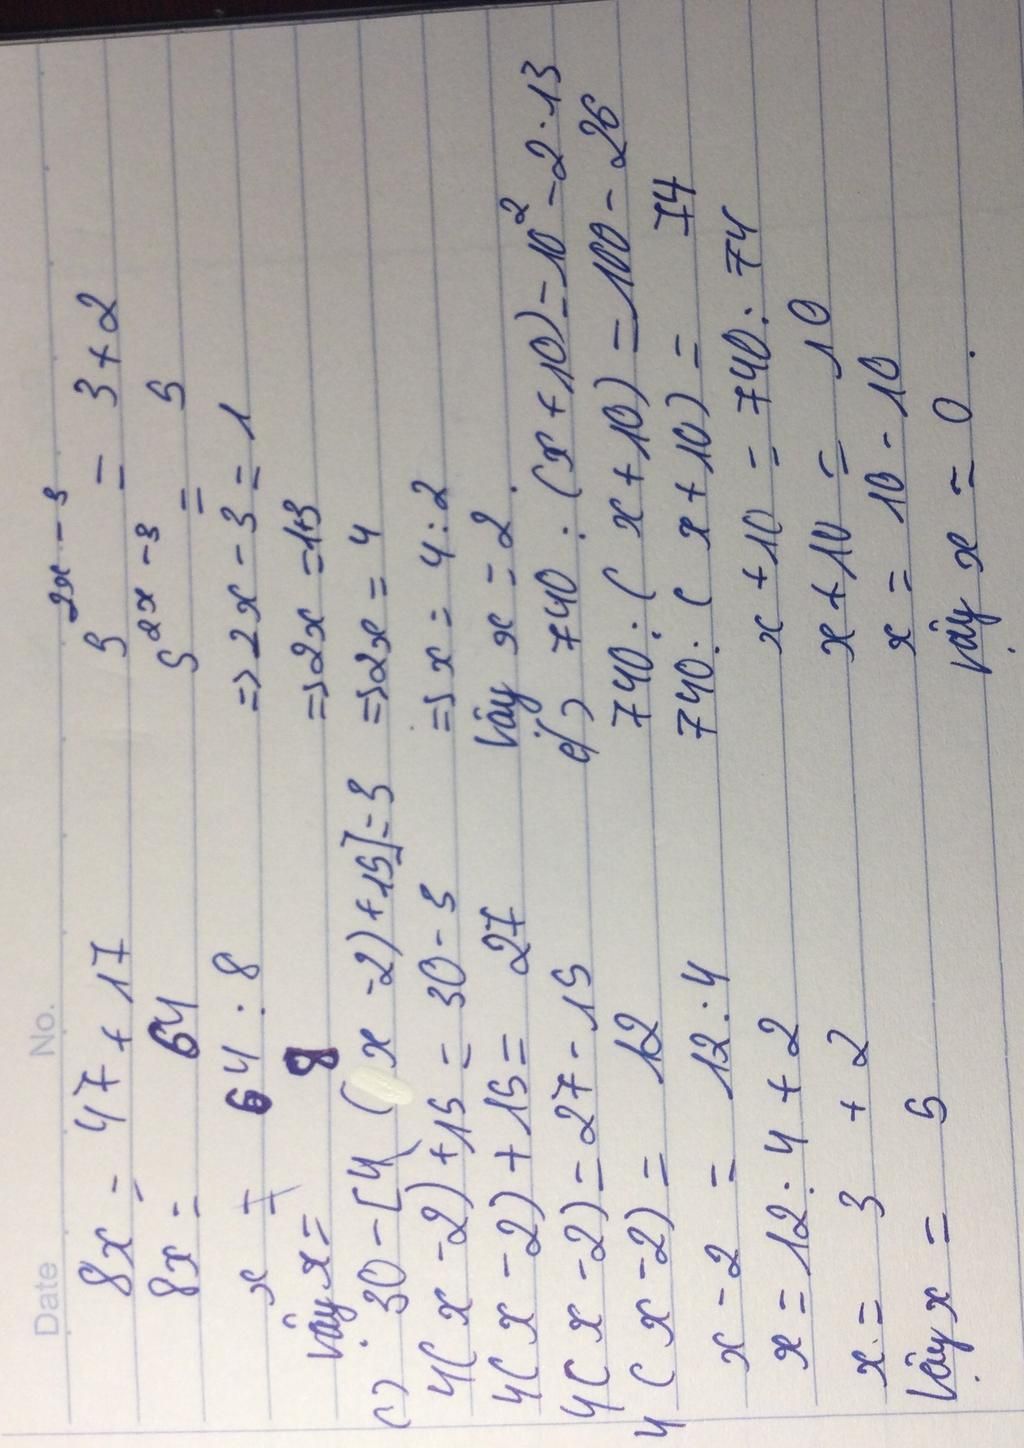 Date No.
8x = 47 + 17
8x = 64
x = 64 : 8
Vậy x = 8
c) 30 - [4 ( x - 2) + 15] = 3
4( x - 2) + 15 = 30 - 3
4( x - 2) + 15 = 27
4( x - 2) = 27 - 15
4 ( x - 2) = 12
x - 2 = 12 : 4
x = 12 : 4 + 2
x = 3 + 2
Vậy x = 5
5^{2x - 3} = 3 + 2
5^{2x - 3} = 5
=> 2x - 3 = 1
=> 2x = 1+3
=> 2x = 4
=> x = 4 : 2
Vậy x = 2.
e) 740 : (x + 10) = 10² - 2 · 13
740 : ( x + 10) = 100 - 26
740 : ( x + 10) = 74
x + 10 = 740 : 74
x + 10 = 10
x = 10 - 10
Vậy x = 0.